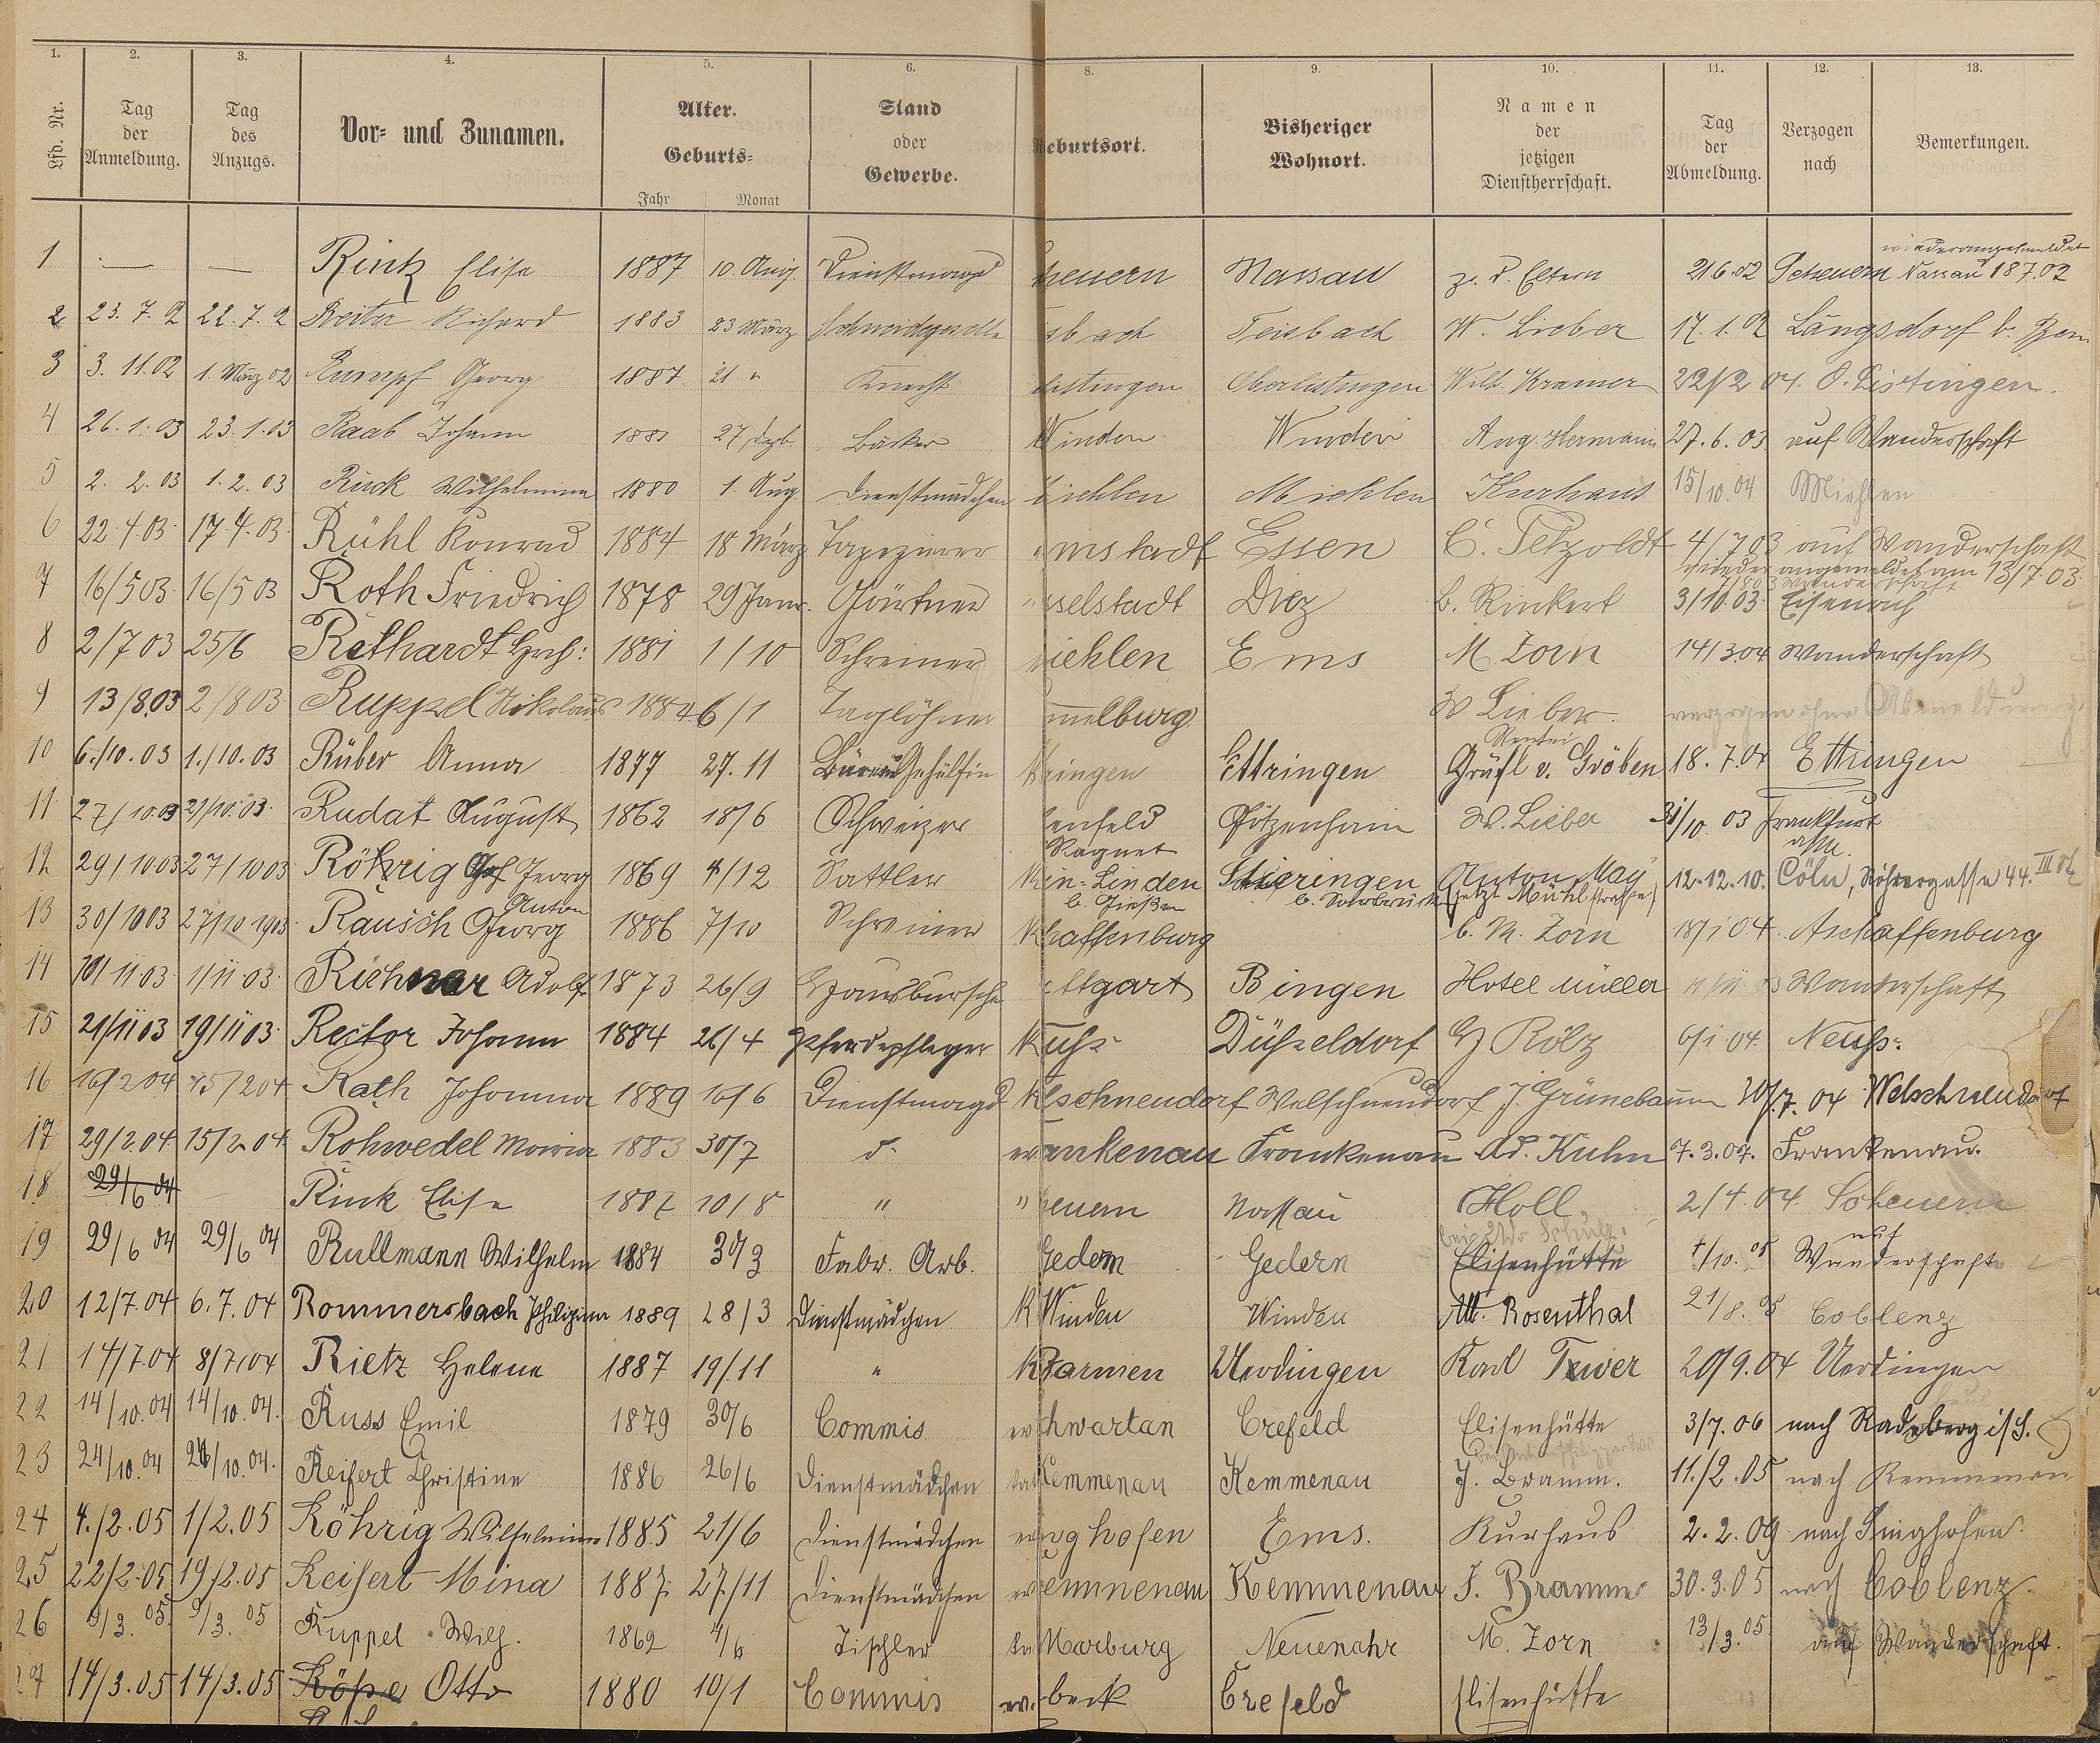 1. 2. 3. 4. 5. 6. 8. 9. 10. 11. 12. 13.
Lfd. Nr. Tag der Anmeldung. Tag des Anzugs. Vor- und Zunamen. Alter. Geburts- Jahr Monat Stand oder Gewerbe. Geburtsort. Bisheriger Wohnort. Namen der jetzigen Dienstherrschaft. Tag der Abmeldung. Verzogen nach Bemerkungen.
wiederangemeldet
1 — — Rink Elise 1887 10. Aug. Dienstmagd heuern Nassau z. d. Eltern 21 6.02 Scheuern Nassau 18 7.02
2 23. 7. 2 22. 7. 2 Reiter Richard 1883 23 März Schneidergeselle sbach W. Lieber 17. 1. 02 Längsdorf b.
3 3. 11.02 1. März 02 Rumpf Georg 1887 21. " Knecht listingen Oberlistingen Wilh. Kramer 22/2 04. O. Listingen.
4 26. 1. 03 23. 1. 03 Raab Johann 27 Dezb. Bäcker Winden Winden Aug. Hermann 27. 6. 03. auf Wanderschaft
5 2. 2. 03 1. 2. 03 Rück Wilhelmine 1880 1. Aug. Dienstmädchen iehlen Miehlen Kurhaus 15/10.04 Miehlen
6 22.4.03. 17.4.03. Rühl Konrad 1884 18 März Tapezierer mstadt Essen C. Petzoldt 4/7 03 auf Wanderschaft
wieder angemeldet am 13/7.03.
7 16/5 03. 16/5 03 Roth Friedrich 1878 29 Janr. Gärtner selstadt Diez b. Rinkert 3/10.03. Eisenach
8 2/7 03 25/6 Rethardt Hrch: 1881 1/10 Schreiner iehlen Ems M. Zorn 14/3.04 Wanderschaft
9 13/8.03 2/8 03. Ruppel Nikolaus 1884 6/1 Taglöhner melburg W Lieber. verzogen ohne Abmeldung.
Rentei
10 6./10. 03 1./10. 03 Rüber Anna 1877 27. 11 Büreau Gehülfin ringen Ettringen Gräfl v. Gröben 18. 7.04 Ettringen
11 27/10.03 21/10.03. Rudat August 1862 18/6 Schweizer enfeld Götzenhain W. Lieber 31/10 03 Frankfurt
Ragnet a/M.
12 29/10 03. 27/10 03 Röhrig Georg 1869 4/12 Sattler ein-Linden Stieringen Anton May 12.12.10. Cöln, 44. III
b. Gießen b. Saarbrücken (jetzt Mühlstrasse)
Anton
13 30/10 03 27/10 1903 Rausch Georg 1886 7/10 Schreiner haffenburg b. M. Zorn 18/1 04. Aschaffenburg
14 10/11 03. 1/11.03. Richnar Adolf 1873 26/9 Hausbursche ttgart Bingen Hotel Müller 11/11 03 Wanderschaft
15 21/11 03 19/11 03. Rector Johann 1884 26/4 Pferdepfleger uß Düßeldorf H Rölz 6/1 04. Neuß.
16 16/2 04 15/2 04 Rath Johanna 1889 16/6 Dienstmagd lschneudorf Welschneudorf J. Grünebaum 30/7. 04 Welschneudorf
17 29/2.04. 15/2 04. Rohwedel Maria 1883 30/7 d. ankenau Frankenau Ad. Kuhn 7.3.07. Frankenau.
18 29/6 04 Rink Elise 1887 10/8 " heuern Nassau Holl 2/4.04. Scheuern
19 29/6 04 29/6 04 Rullmann Wilhelm 1884 30/3 Fabr. Arb. Gedern Gedern Elisenhütte 4/10. 05 auf Wanderschaft
20 12/7.04 6. 7. 04 Rommersbach Philippine 1889 28/3 Dienstmädchen Winden Winden Alb. Rosenthal 21/8. 05 Coblenz
21 14/7.04 8/7/04 Rietz Helene 1887 19/11 " Barmen Uerdingen Karl Tewer 20/9.04 Uerdingen
22 14/10.04 14/10.04. Russ Emil 1879 30/6 Commis chwartau Crefeld Elisenhütte 3/7. 06 nach Radeberg i/S.
23 24/10.04 24/10.04. Reifert Christine 1886 26/6 Dienstmädchen Kemmenau Kemmenau J. Bramm. 11./2.05 nach Kemmenau
24 4./2.05 1/2.05 Röhrig Wilhelmine 1885 21/6 Dienstmädchen nghofen Ems. Kurhaus 2.2.09 nach Singhofen.
25 22/2.05 19/2.05 Reifert Mina 1887 27/11 Dienstmädchen emmenau Kemmenau J. Bramm 30.3.05 nach Coblenz
26 9/3. 05. 9/3. 05 Ruppel Wilh. 1862 4/6 Tischler Marburg Neuenahr M. Zorn 13/3.05 auf Wanderschaft.
27 14/3.05 14/3.05 Otto 1880 10/1 Commis beck Crefeld Elisenhütte